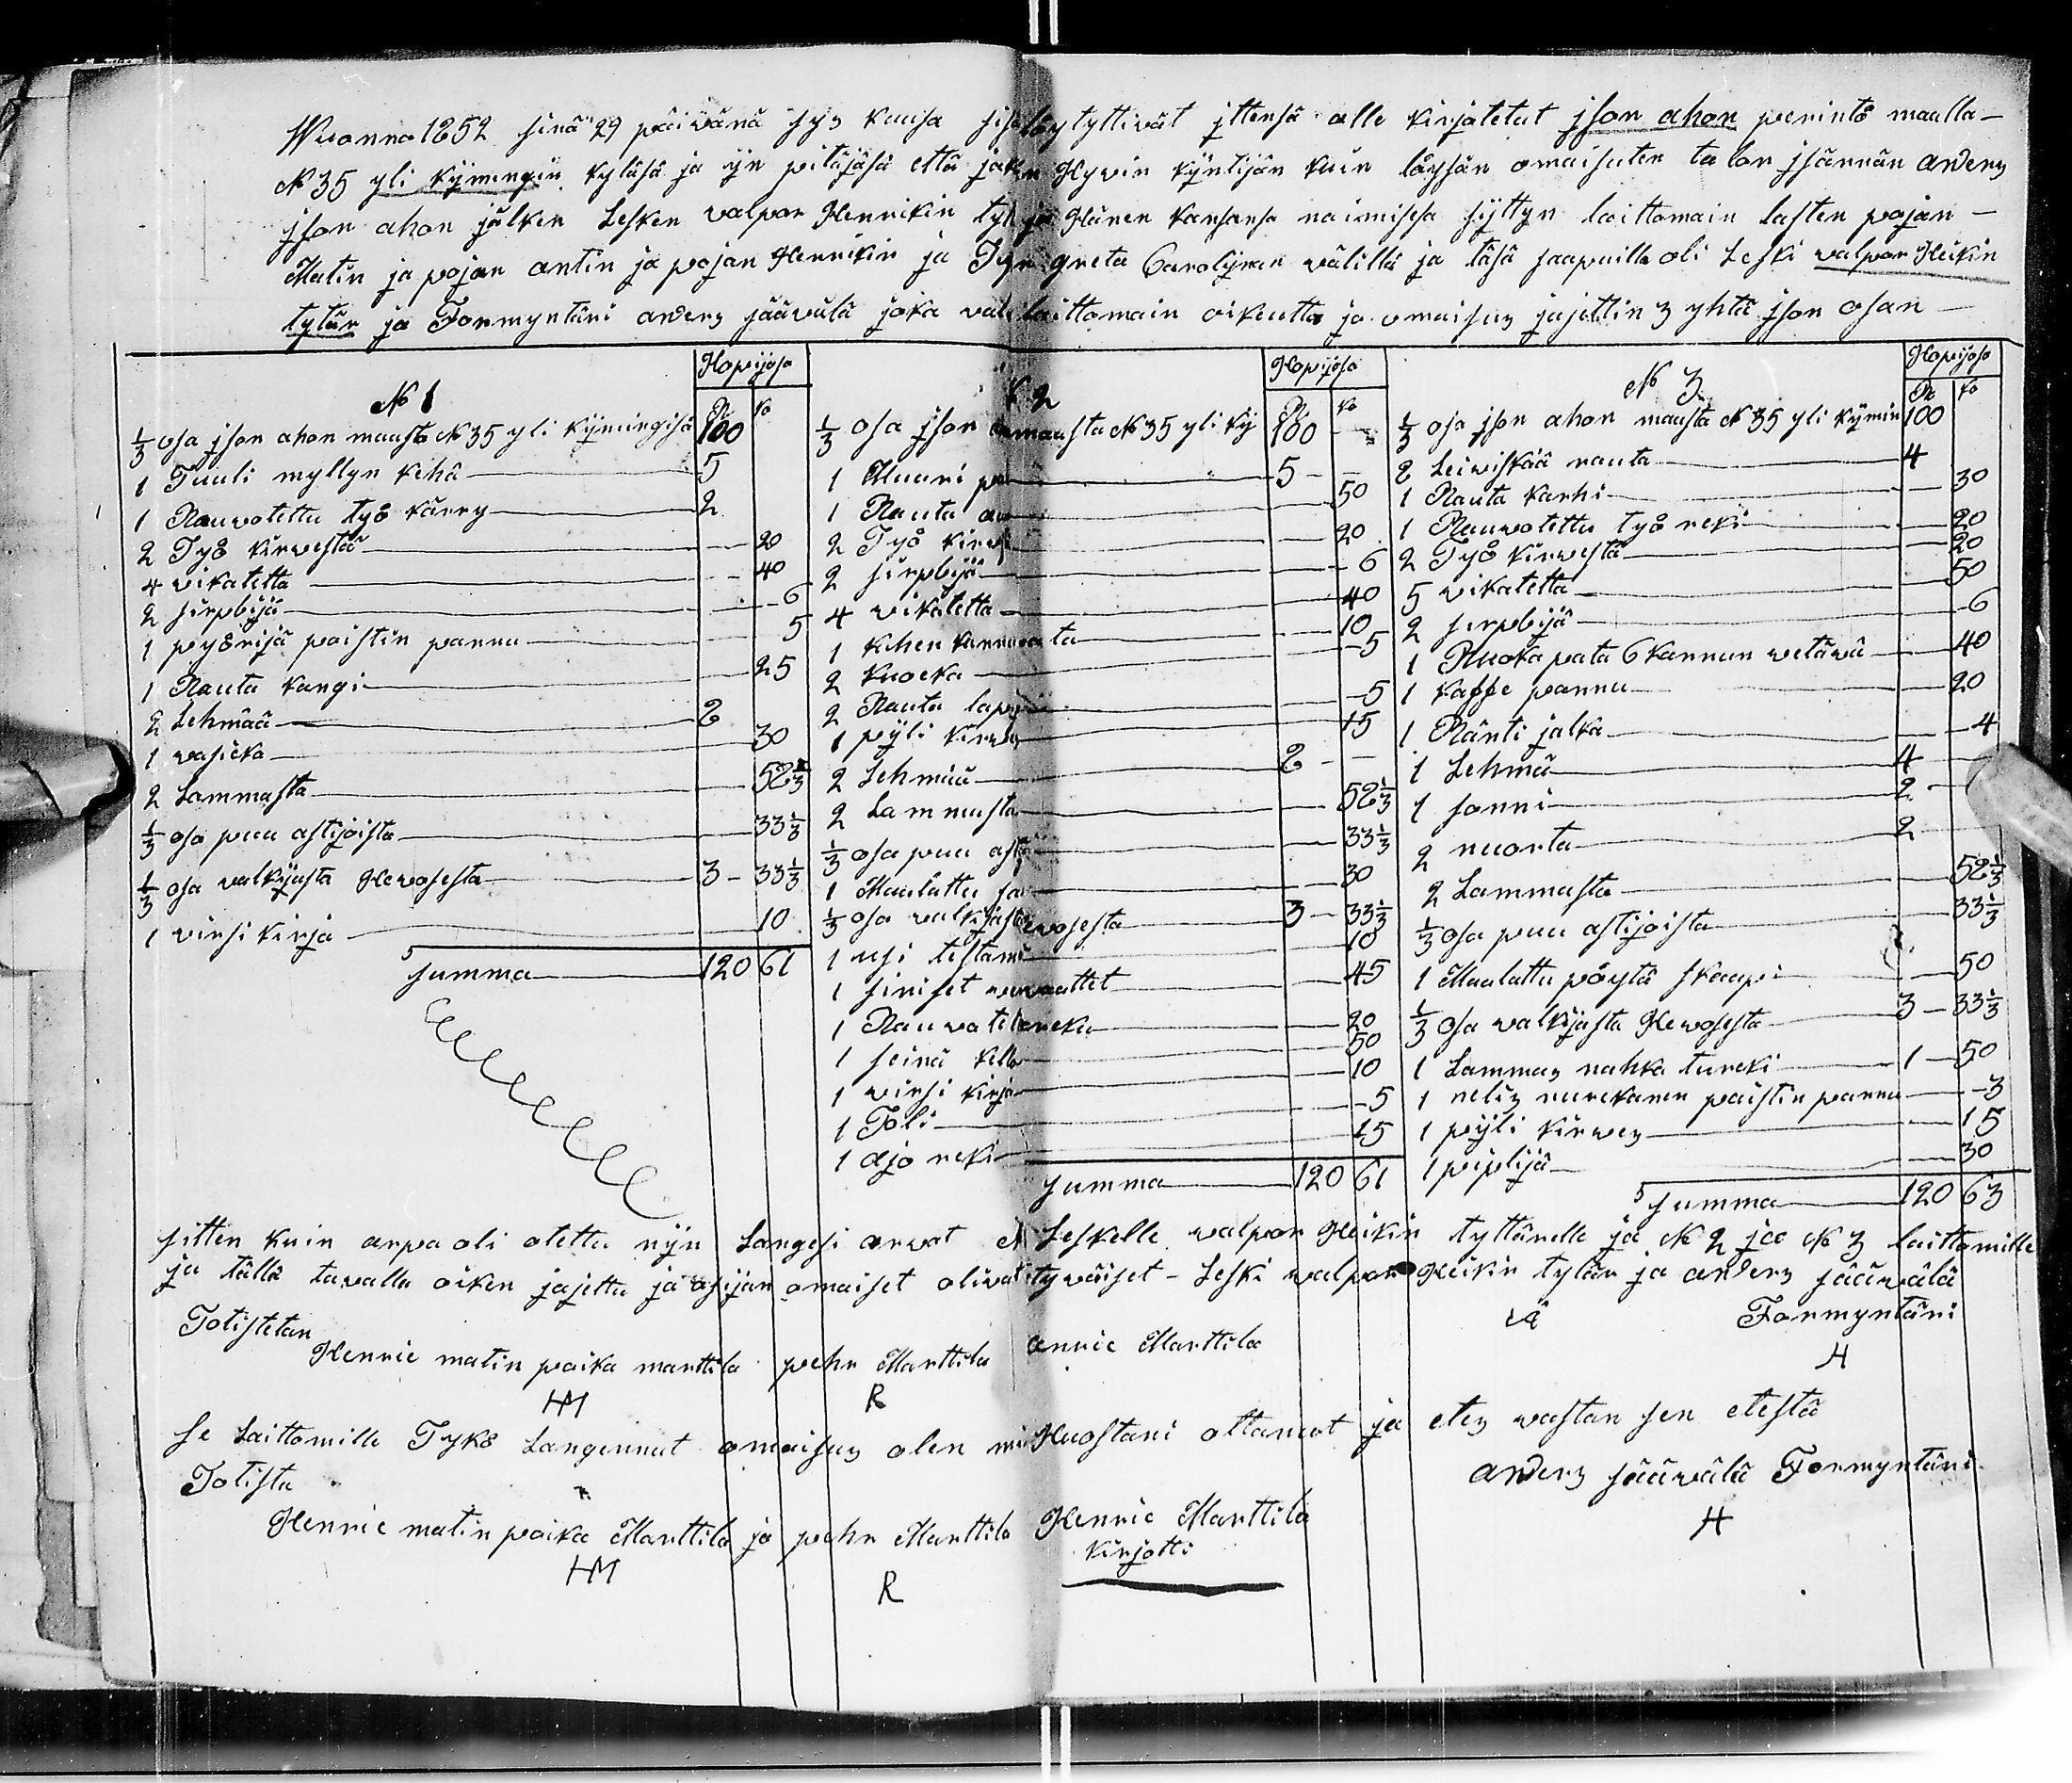 Wuonna 1852 sinä 29 päiwänä sys kuusa löytyttiwät ittensä alle kirjotetut json ahon perintö maalla
N 35 yli kijmingin kylåsä ja ijn pitäjäsä että Hywin kyntijän kuin låysån omaisuten talon jsännän anders
json ahon jålken Lesken walpor Henrikin ja Hänen kansansa naimisesa syttyn laittomain lasten pojan
Matin ja pojan antin ja pojan Henrikin ja greta Carolijnan wålillä ja täsä saapuilla oli Leski walpor Heikin
tytär ja Formyntäri anders jääwälä joka laittomain oikeutta ja omaisus jajettin 3 yhtä json osan
Hopijasa Hopijasa Hopijasa
N 1 2 N 3
R ko R ko R ko
1/3 osa json ahon maasta N 35 yli kijmingisä 100
1 Tuuli myllyn kehä 5
1 Rauwotettu työ kärry 2
2 Työ kirwestä 20
4 wikatetta 40
2 sirpbijä 6
1 pyörijä paistin pannu 5
1 Rauta kangi 25
2 Lehmää 2
1 wasicka 30
2 Lammasta 52 1/3
1/3 osa puu astijoista 33 1/3
1/3 osa walkijasta Hewosesta 3 33 1/3
1 wirsi kirja 10
summa 120 61
1/3 osa json maasta N 35 yli ky 100
1 Muuri 5
1 Rauta 50
2 Työ 20
2 sirpbijä 6
4 wikatetta 40
1 kahen kannun 10
2 kuocka 5
2 Rauta 5
1 pijli kirwes 15
2 Lehmää 2
2 Lammasta 52 1/3
1/3 osa puu 33 1/3
1 Maalattu 30
1/3 osa walkijasta 3 33 1/3
1 usi 10
1 siniset 45
1 20
1 seinä kello 50
1 wirsi kirja 10
1 Toli 5
1 ajo reki 15
summa 120 61
1/3 osa json ahon maasta N 35 yli kijmin 100
2 Leiwiskää rauta 4
1 Rauta karhi 30
1 Rauwotettu työ reki 20
2 Työ kirwestä 20
5 wikatetta 50
2 sirpbijä 6
1 Ruoka pata 6 kannun wetäwä 40
1 kaffe pannu 20
1 Ränti jalka 4
1 Lehmä 4
1 sonni 2
2 nuorta 2
2 Lammasta 52 1/3
1/3 osa puu astijoista 33 1/3
1 Maalattu pöytä skaapi 50
1/3 osa walkijasta Hewosesta 3 33 1/3
1 Lammas nahka turcki 1 50
1 nelis nurckanen paistin pannu 3
1 pijli kirwes 15
1 piplijä 30
summa 120 63
sitten kuin arpa oli otettu nijn Langesi arwat Leskelle walpor Heikin tyttärelle ja N 2 jaa N 3 laittomille
ja tällä tawalla oiken jajettu ja asijan omaiset oliwat tywäiset - Leski walpor Heikin tytär ja anders jääwälä
Totistetan Formyntäri
Henric matin poika marttila pehr Marttila Marttila H
HM R
se Laittomille Tykö Langennut omaisus olen Huostani ottanut ja etes wastan sen etestä
Totista anders jääwälä Formyntäri
Henric matin poika Marttila ja pehr Marttila Henric Marttila H
HM R kirjotti